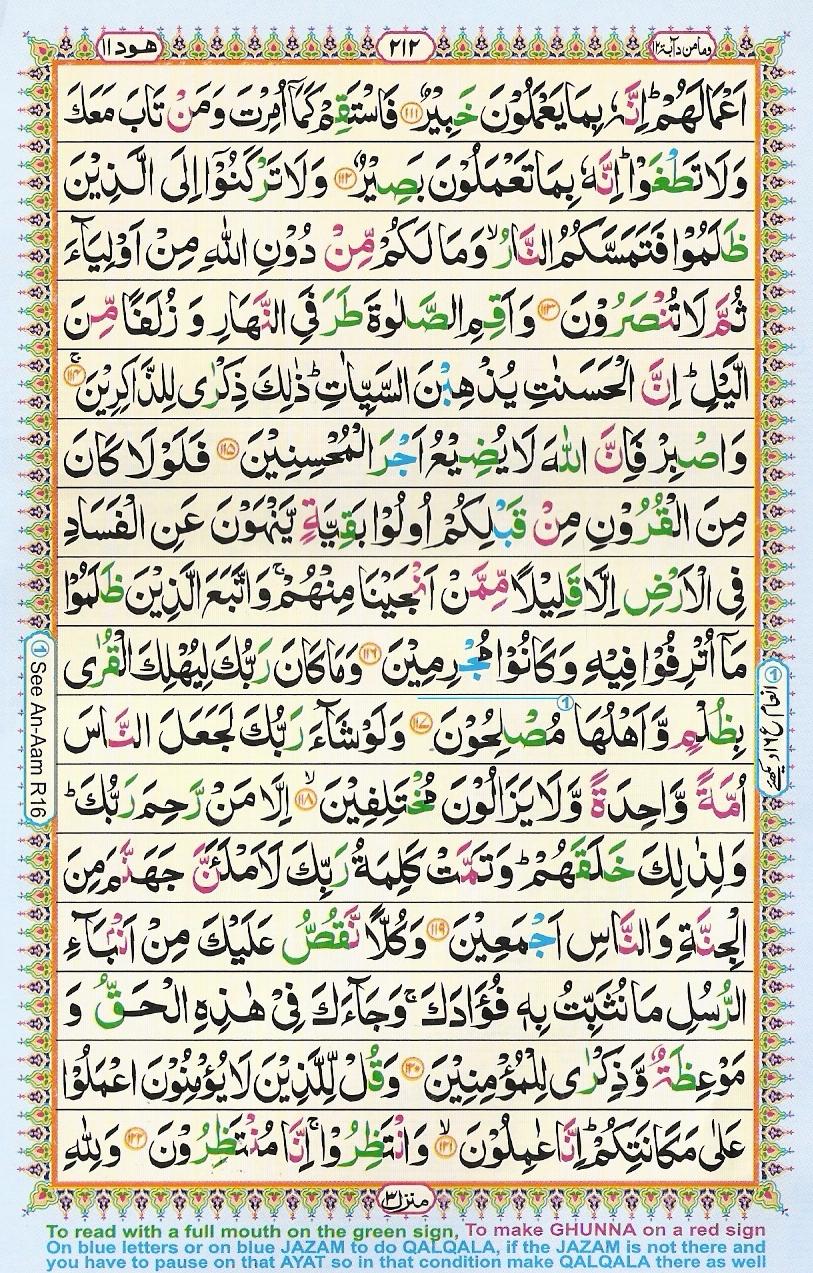 وما من دآبة ١٢
٢١٢
هود ١١
اَعْمَالَهُمْ ؕ اِنَّهٗ بِمَا يَعْمَلُوْنَ خَبِيْرٌ ﴿۱۱۱﴾ فَاسْتَقِمْ كَمَاۤ اُمِرْتَ وَ مَنْ تَابَ مَعَكَ
وَ لَا تَطْغَوْا ؕ اِنَّهٗ بِمَا تَعْمَلُوْنَ بَصِيْرٌ ﴿۱۱۲﴾ وَ لَا تَرْكَنُوْۤا اِلَى الَّذِيْنَ
ظَلَمُوْا فَتَمَسَّكُمُ النَّارُ ۙ وَ مَا لَكُمْ مِّنْ دُوْنِ اللّٰهِ مِنْ اَوْلِيَآءَ
ثُمَّ لَا تُنْصَرُوْنَ ﴿۱۱۳﴾ وَ اَقِمِ الصَّلٰوةَ طَرَفَيِ النَّهَارِ وَ زُلَفًا مِّنَ
الَّيْلِ ؕ اِنَّ الْحَسَنٰتِ يُذْهِبْنَ السَّيِّاٰتِ ؕ ذٰلِكَ ذِكْرٰى لِلذّٰكِرِيْنَ ﴿۱۱۴﴾ۚ
وَ اصْبِرْ فَاِنَّ اللّٰهَ لَا يُضِيْعُ اَجْرَ الْمُحْسِنِيْنَ ﴿۱۱۵﴾ فَلَوْ لَا كَانَ
مِنَ الْقُرُوْنِ مِنْ قَبْلِكُمْ اُولُوْا بَقِيَّةٍ يَّنْهَوْنَ عَنِ الْفَسَادِ
فِى الْاَرْضِ اِلَّا قَلِيْلًا مِّمَّنْ اَنْجَيْنَا مِنْهُمْ ۚ وَ اتَّبَعَ الَّذِيْنَ ظَلَمُوْا
مَاۤ اُتْرِفُوْا فِيْهِ وَ كَانُوْا مُجْرِمِيْنَ ﴿۱۱۶﴾ وَ مَا كَانَ رَبُّكَ لِيُهْلِكَ الْقُرٰى
بِظُلْمٍ وَّ اَهْلُهَا مُصْلِحُوْنَ ﴿۱۱۷﴾ وَ لَوْ شَآءَ رَبُّكَ لَجَعَلَ النَّاسَ
اُمَّةً وَّاحِدَةً وَّ لَا يَزَالُوْنَ مُخْتَلِفِيْنَ ﴿۱۱۸﴾ۙ اِلَّا مَنْ رَّحِمَ رَبُّكَ ؕ
وَ لِذٰلِكَ خَلَقَهُمْ ؕ وَ تَمَّتْ كَلِمَةُ رَبِّكَ لَاَمْلَـَٔنَّ جَهَنَّمَ مِنَ
الْجِنَّةِ وَ النَّاسِ اَجْمَعِيْنَ ﴿۱۱۹﴾ وَ كُلًّا نَّقُصُّ عَلَيْكَ مِنْ اَنْۢبَآءِ
الرُّسُلِ مَا نُثَبِّتُ بِهٖ فُؤَادَكَ ۚ وَ جَآءَكَ فِيْ هٰذِهِ الْحَقُّ وَ
مَوْعِظَةٌ وَّ ذِكْرٰى لِلْمُؤْمِنِيْنَ ﴿۱۲۰﴾ وَ قُلْ لِّلَّذِيْنَ لَا يُؤْمِنُوْنَ اعْمَلُوْا
عَلٰى مَكَانَتِكُمْ ؕ اِنَّا عٰمِلُوْنَ ﴿۱۲۱﴾ۙ وَ انْتَظِرُوْا ۚ اِنَّا مُنْتَظِرُوْنَ ﴿۱۲۲﴾ وَ لِلّٰهِ
منزل ٣
① See An-Aam R16
① انعام ع ١٦ دیکھئے
To read with a full mouth on the green sign, To make GHUNNA on a red sign
On blue letters or on blue JAZAM to do QALQALA, if the JAZAM is not there and
you have to pause on that AYAT so in that condition make QALQALA there as well